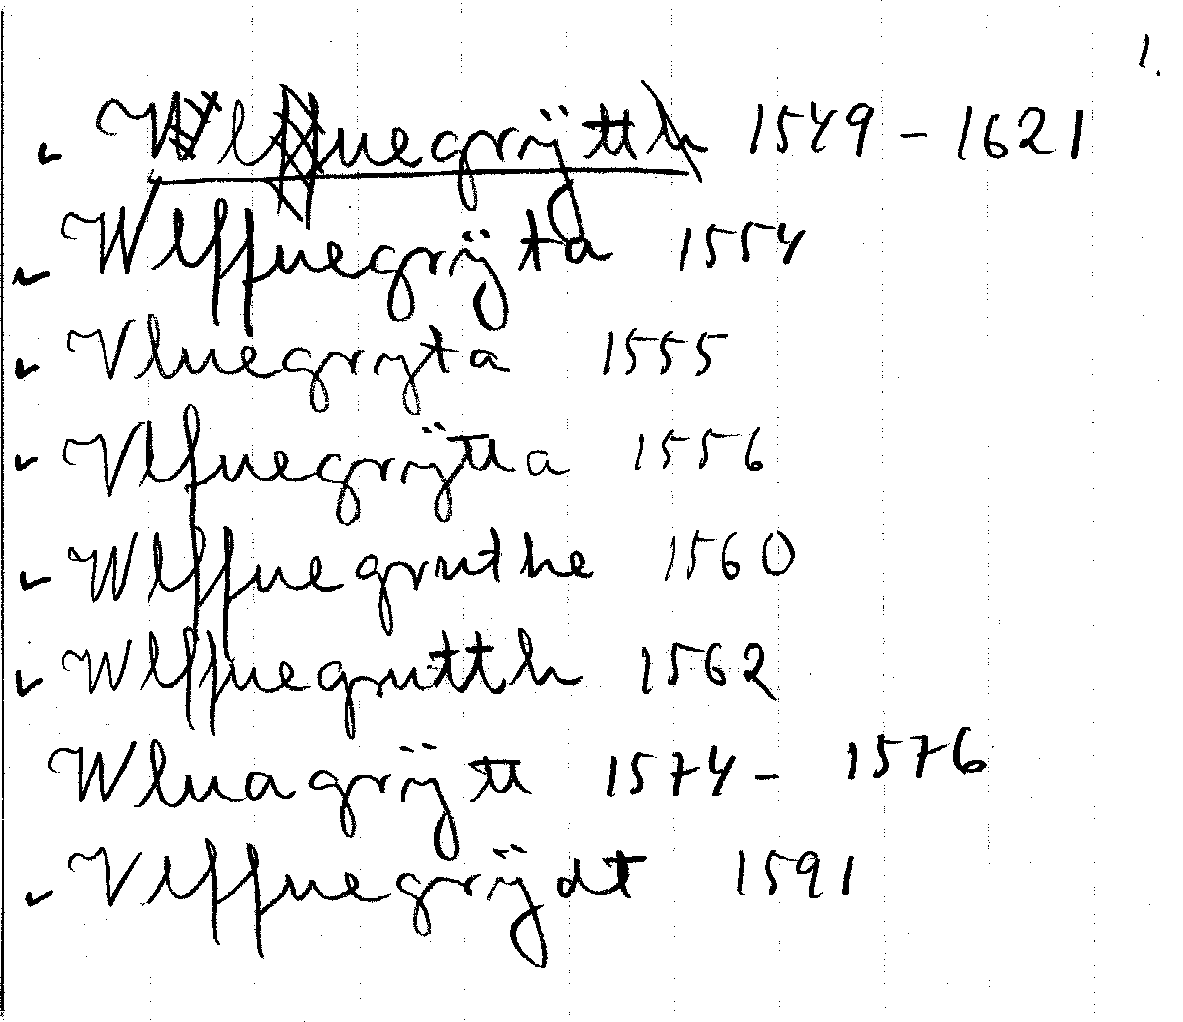 1.
Wlffuegrÿtth 1549 - 1621
Wlffuegrÿta 1554
Vluegryta 1555
Vlfuegrÿtta 1556
Wlffuegruthe 1560
Wlffuegrutth 1562
Wluagrÿtt 1574 - 1576
Vlffuegrÿdt 1591